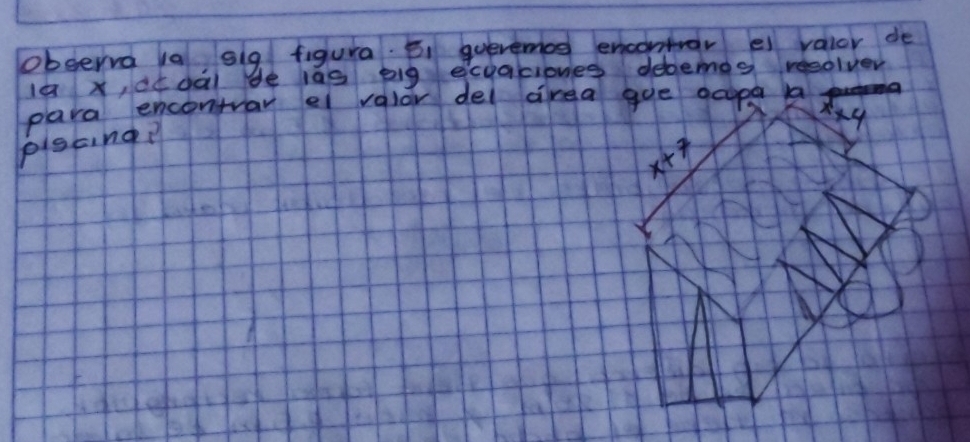 Observa la sig figura. Si queremos encontrar el valor de
la x, ¿cuál de las sig ecuaciones debemos resolver
para encontrar el valor del área que ocupa la
piscina?
x+7